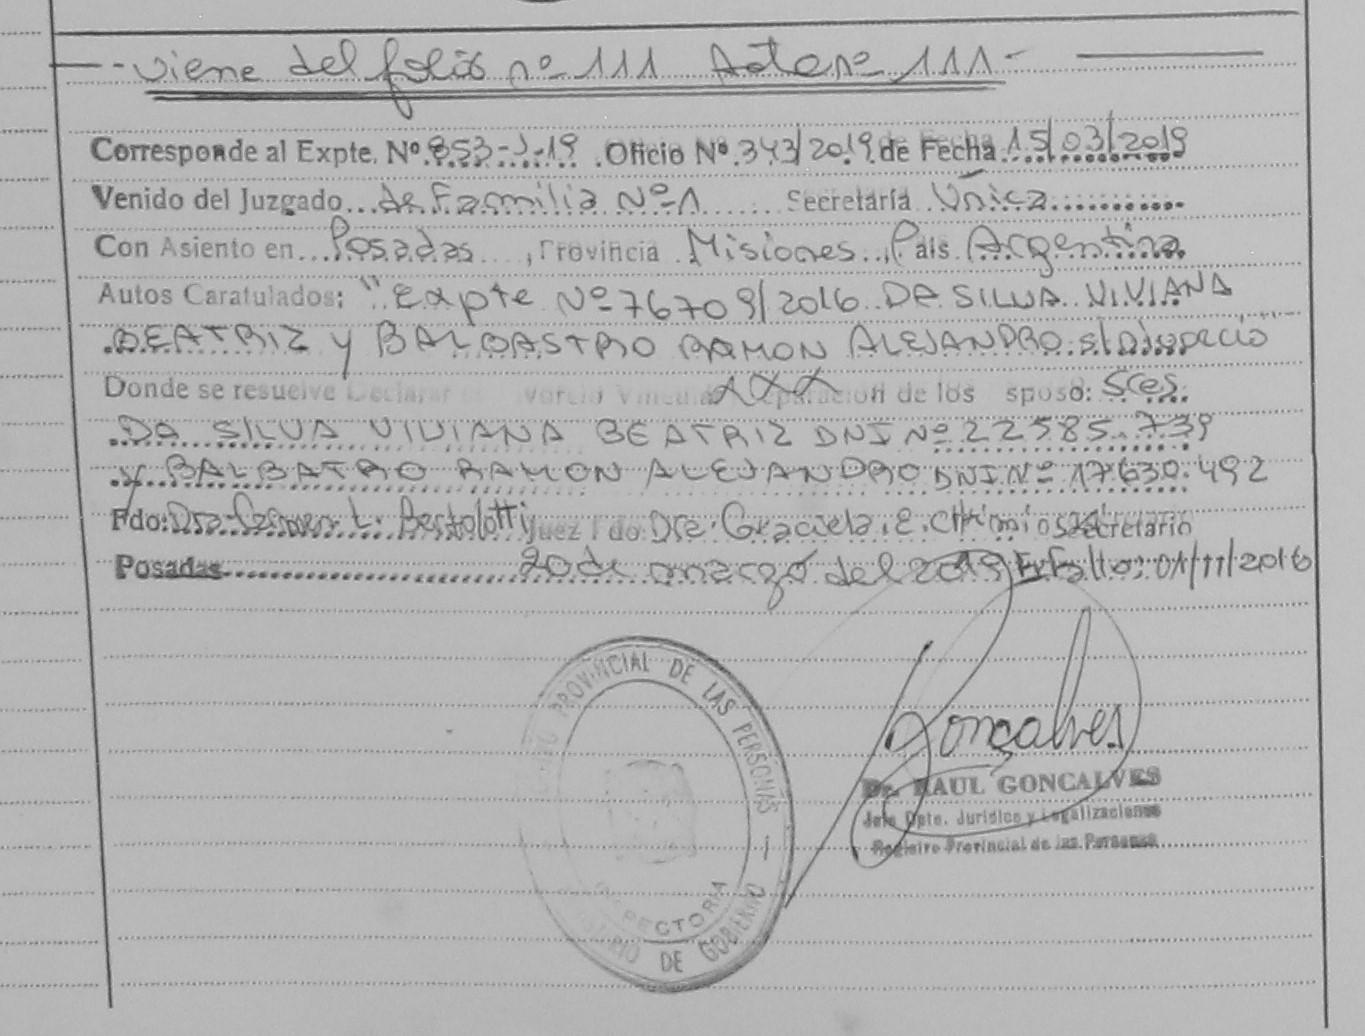 - - viene del folio nº 111 Acta nº 111 -
Corresponde al Expte. Nº 853-J-19 . Oficio Nº 343/2019 de Fecha 15/03/2019
Venido del Juzgado de Familia Nº 1 Secretaría Única
Con Asiento en Posadas, Provincia Misiones, País Argentina
Autos Caratulados: "Expte Nº 76709/2016 DA SILVA VIVIANA
BEATRIZ y BALBASTRO RAMON ALEJANDRO s/
Donde se resuelve Declarar el vorcio Vincular XXX eparación de los sposo: Sres
DA SILVA VIVIANA BEATRIZ DNI Nº 22585.739
y BALBATRO RAMON ALEJANDRO DNI Nº 17.630.492
Fdo: Dra. Carmen L. Bertolotti Juez Fdo: Dra. Graciela E. Secretario
Posadas 20 de marzo del 2019 Fallo: 01/11/2016
PROVINCIAL DE LAS PERSONAS
DIRECTORA
DE GOBIERNO
Goncalves
Dr. RAUL GONCALVES
Jefe Dpto. Jurídico y Legalizaciones
Registro Provincial de las Personas